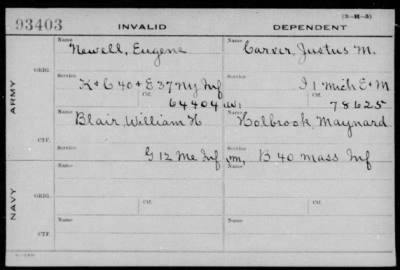 93403 INVALID DEPENDENT (3-H-5)
Name Name
Newell, Eugene Carver, Justus M.
ARMY
ORIG.
Service Service
K+C 40+E 37 Ny Inf I 1 Mich E+M
Ctf. Ctf.
64404 78625
Name Name
Blair, William H Holbrook, Maynard
CTF.
Service Service
G 12 Me Inf B 40 Mass Inf
NAVY
ORIG.
Name Ctf. Name Ctf.
CTF.
Name Name